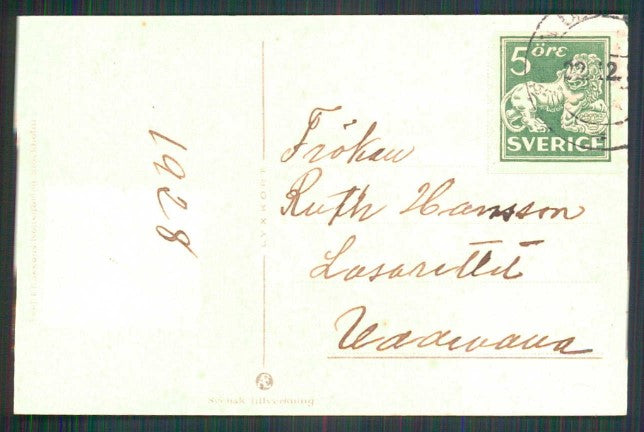 5 ÖRE
SVERIGE
22.12.
Fröken
Ruth Hansson
Lasarettet
Uddevalla
1928
LYXKORT
Svensk tillverkning